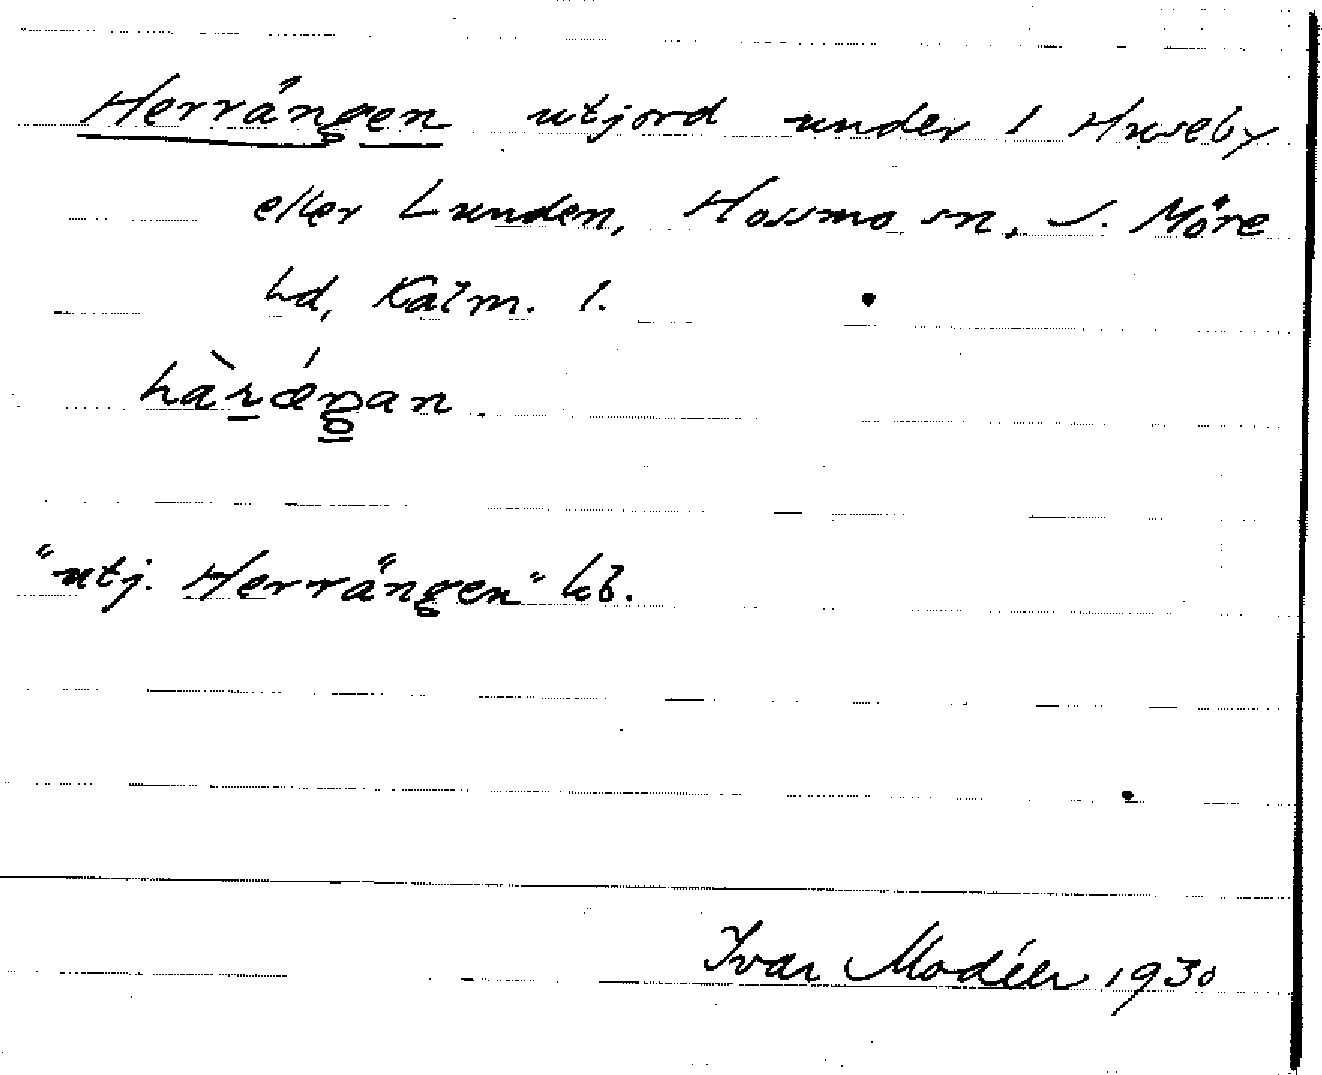 Herrängen utjord under 1 Huseby
eller Lunden, Hossmo sn, S. Möre
hd, Kalm. l.
hàrǽŋan.
"utj. Herrängen" kb.
Ivar Modéer 1930